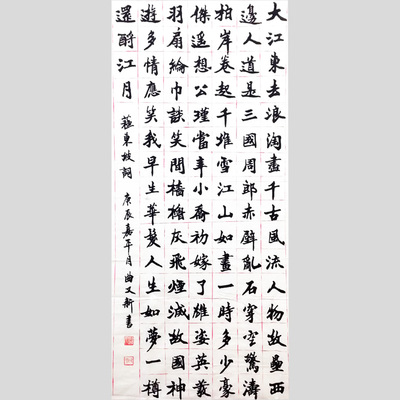 大江東去浪淘盡千古風流人物故壘西
邊人道是三國周郎赤壁亂石穿空驚濤
拍岸卷起千堆雪江山如畫一時多少豪
傑遥想公瑾當年小喬初嫁了雄姿英發
羽扇綸巾談笑間檣櫓灰飛煙滅故國神
遊多情應笑我早生華髮人生如夢一樽
還酹江月 蘓東坡詞 庚辰嘉平月曲又新書